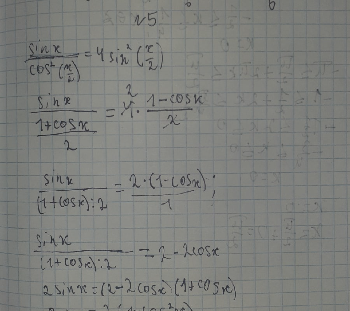 №5
sin x / cos²(x/2) = 4 sin²(x/2)
sin x / ((1+cos x)/2) = 4̶ 2 · (1-cos x)/2̶
sin x / ((1+cos x):2) = 2·(1-cos x)/1 ;
sin x / ((1+cos x):2) = 2 - 2cos x
2 sin x = (2-2cos x)(1+cos x);